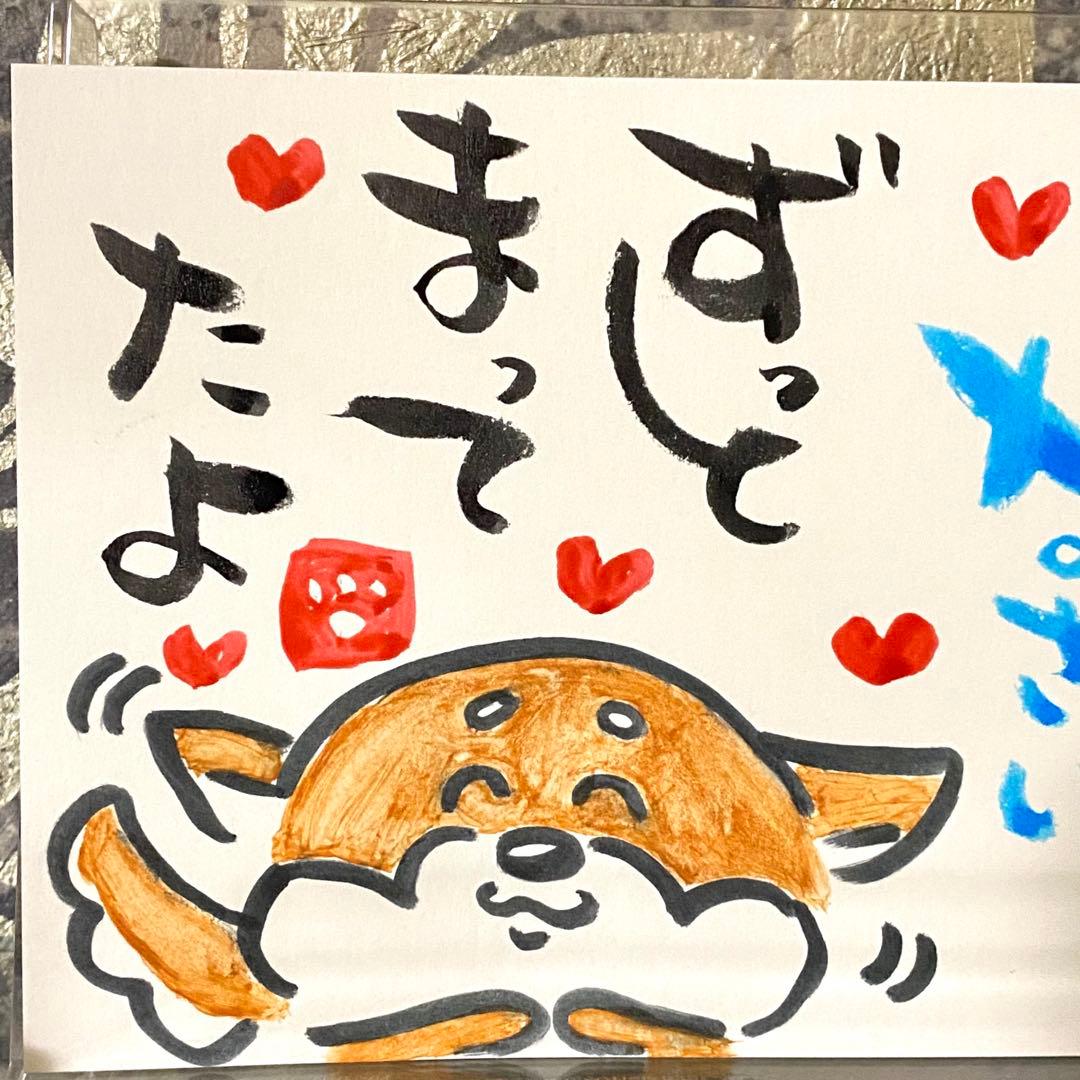 ずっと
まって
たよ